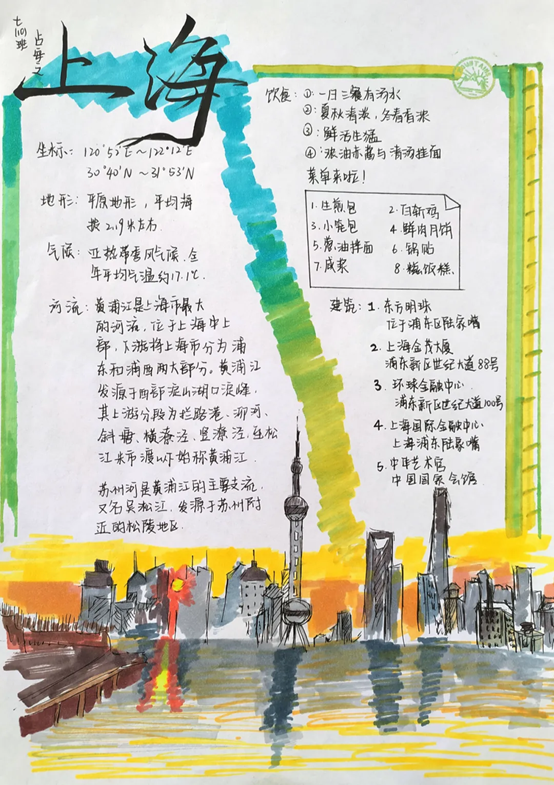 七(11)班
上海
坐标: 120°52′E～122°12′E
30°40′N～31°53′N
地形: 平原地形,平均海
拔2.19米左右
气候: 亚热带季风气候.全
年平均气温约17.1℃.
河流: 黄浦江是上海市最大
的河流,位于上海中上
部,下游将上海市分为浦
东和浦西两大部分,黄浦江
发源于西部淀山湖口淀峰,
其上游分段为拦路港、泖河、
斜塘、横潦泾、竖潦泾,至松
江米市渡以下始称黄浦江.
苏州河是黄浦江的主要支流,
又名吴淞江.发源于苏州附
近的松陵地区.
饮食: ①:一日三餐有汤水
②:夏秋清淡,冬春香浓
③:鲜活生猛
④:浓油赤酱与清汤挂面
菜单来啦!
1.生煎包 2.白斩鸡
3.小笼包 4.鲜肉月饼
5.葱油拌面 6.锅贴
7.咸浆 8.糍饭糕.
建筑: 1.东方明珠
位于浦东区陆家嘴
2.上海金茂大厦
浦东新区世纪大道88号
3.环球金融中心
浦东新区世纪大道100号
4.上海国际金融中心.
上海浦东陆家嘴
5.中华艺术宫
中国国家会馆